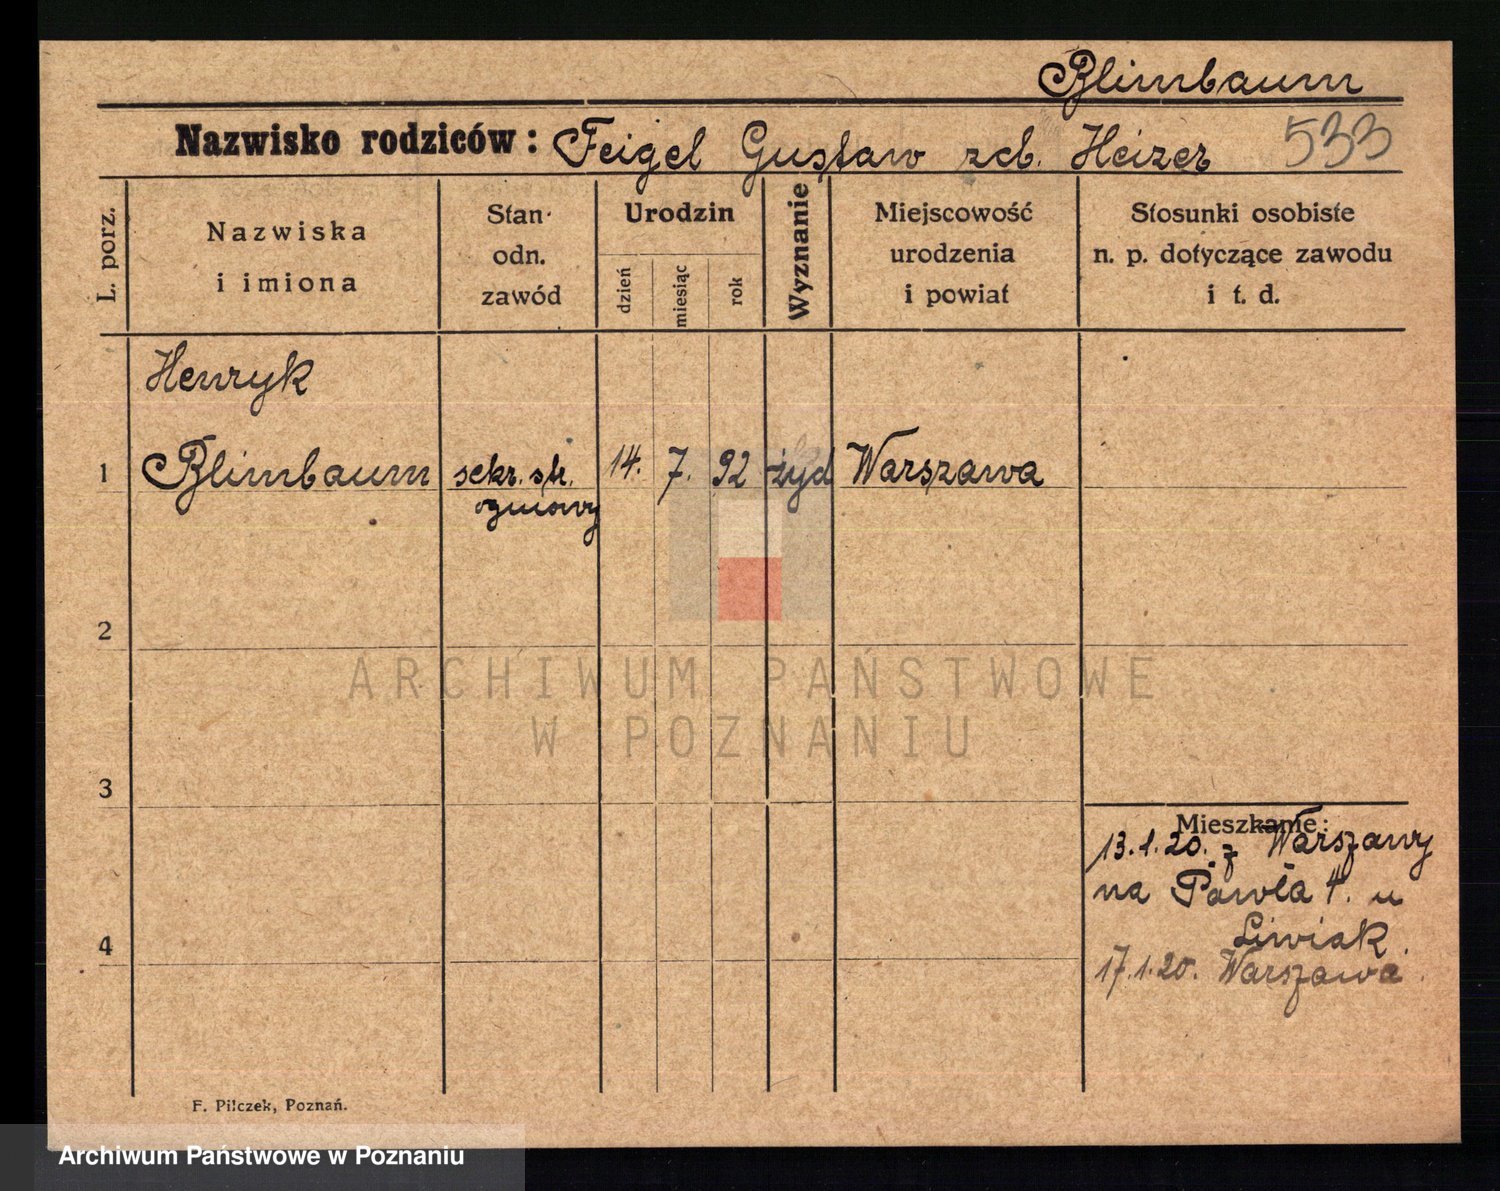 Blimbaum
Nazwisko rodziców: Feigel Gustaw zd. Heizer 533
L. porz.
Nazwiska
i imiona
Stan-
odn.
zawód
Urodzin
dzień
miesiąc
rok
Wyznanie
Miejscowość
urodzenia
i powiat
Stosunki osobiste
n. p. dotyczące zawodu
i t. d.
Henryk
1 Blimbaum sekr. 14. 7. 92 żyd Warszawa
2
3
Mieszkanie:
13.1.20. z Warszawy
na Pawła 4. u
4 Liwiak
17.1.20. Warszawa.
F. Pilczek, Poznań.
ARCHIWUM PAŃSTWOWE
W POZNANIU
Archiwum Państwowe w Poznaniu